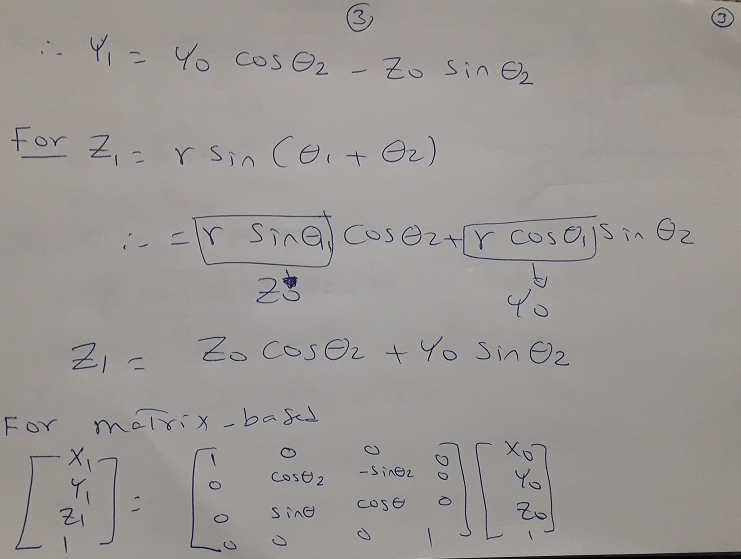 ③ ③
∴ Y₁ = Y₀ cosθ₂ - Z₀ sinθ₂
For Z₁ = r sin (θ₁ + θ₂)
∴ = r sinθ₁ cosθ₂ + r cosθ₁ sinθ₂
Z₀ Y₀
Z₁ = Z₀ cosθ₂ + Y₀ sinθ₂
For matrix-based
[X₁ [1 0 0 0 [X₀
Y₁ 0 cosθ₂ -sinθ₂ 0 Y₀
Z₁ = 0 sinθ cosθ 0 Z₀
1] 0 0 0 1] 1]